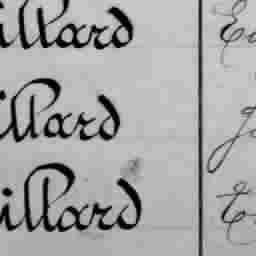 illard
illard
illard